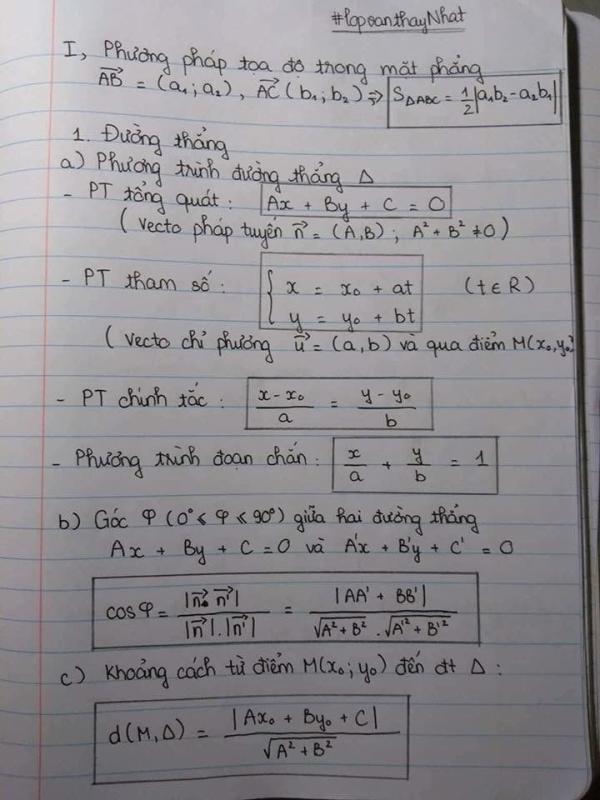 #loptoanthayNhat
I, Phương pháp tọa độ trong mặt phẳng
$\overrightarrow{AB}$ = (a₁; a₂), $\overrightarrow{AC}$ (b₁; b₂) ⇒ S_{ΔABC} = $\frac{1}{2}$|a₁b₂ - a₂b₁|
1. Đường thẳng
a) Phương trình đường thẳng Δ
- PT tổng quát: Ax + By + C = 0
(Vecto pháp tuyến $\vec{n}$ = (A,B); A² + B² ≠ 0)
- PT tham số: { x = x₀ + at (t ∈ R)
y = y₀ + bt
(Vecto chỉ phương $\vec{u}$ = (a,b) và qua điểm M(x₀,y₀)
- PT chính tắc: $\frac{x - x₀}{a}$ = $\frac{y - y₀}{b}$
- Phương trình đoạn chắn: $\frac{x}{a}$ + $\frac{y}{b}$ = 1
b) Góc φ (0° ≤ φ ≤ 90°) giữa hai đường thẳng
Ax + By + C = 0 và A'x + B'y + C' = 0
cosφ = $\frac{|\vec{n}.\vec{n'}|}{|\vec{n}|.|\vec{n'}|}$ = $\frac{|AA' + BB'|}{\sqrt{A² + B²}.\sqrt{A'² + B'²}}$
c) Khoảng cách từ điểm M(x₀; y₀) đến đt Δ:
d(M,Δ) = $\frac{|Ax₀ + By₀ + C|}{\sqrt{A² + B²}}$